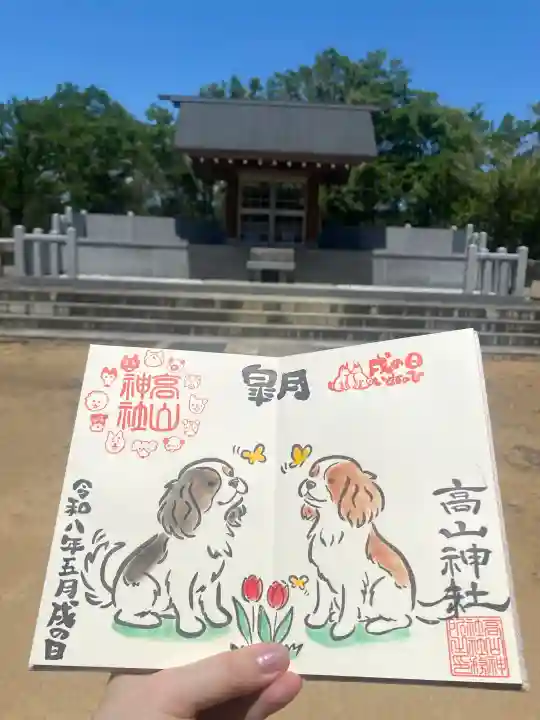 皐月
戌の日
高山神社
高山神社
令和八年五月戌の日